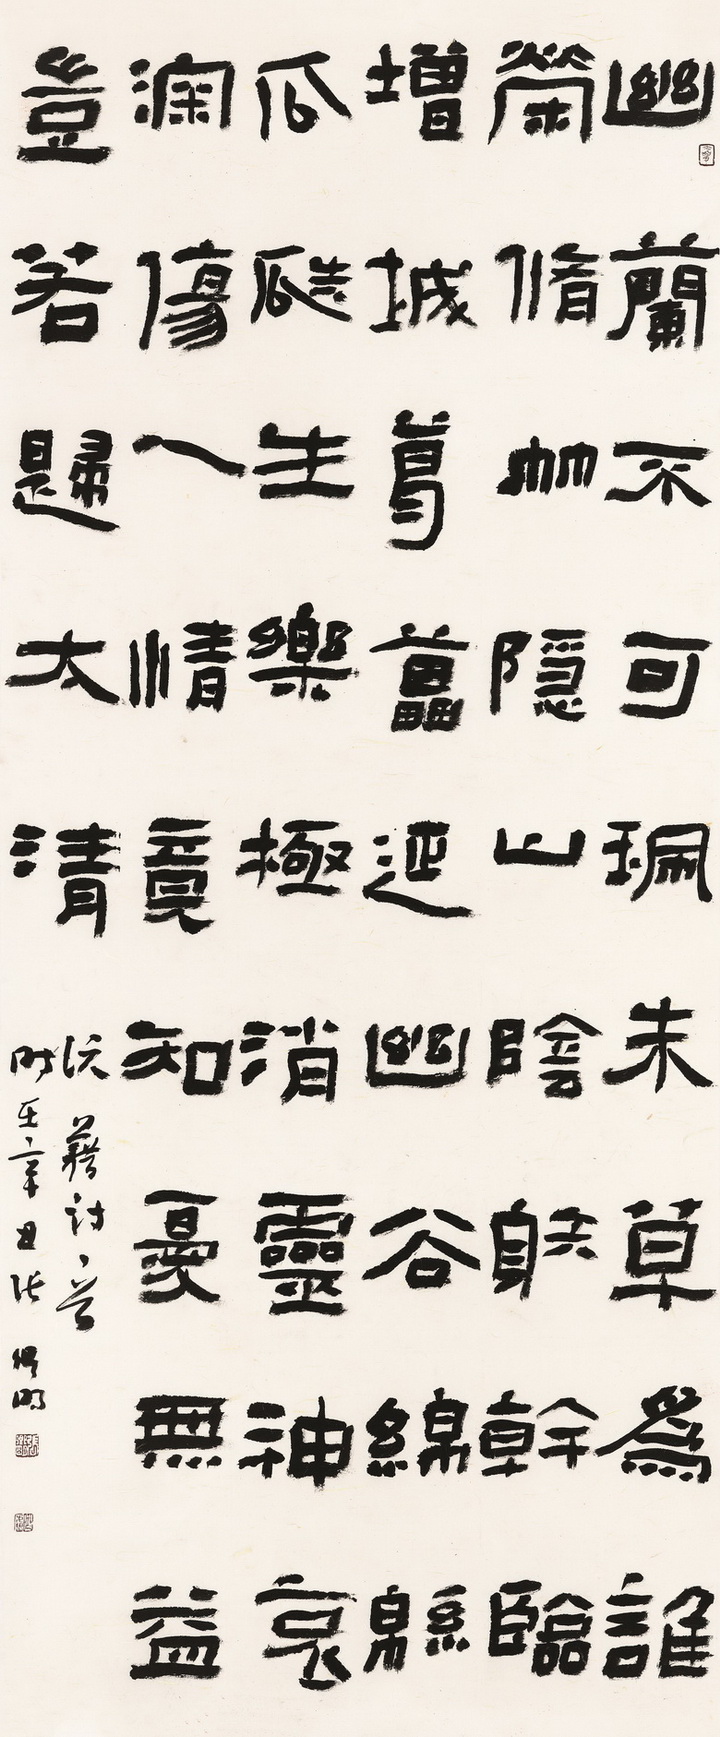 幽蘭不可珮朱草為誰
榮脩竹隱山陰射幹臨
增城葛藟延幽谷綿緜
瓜瓞生樂極消靈神哀
深傷人情竟知憂無益
豈若歸太清
阮籍詩一首
時在辛丑張